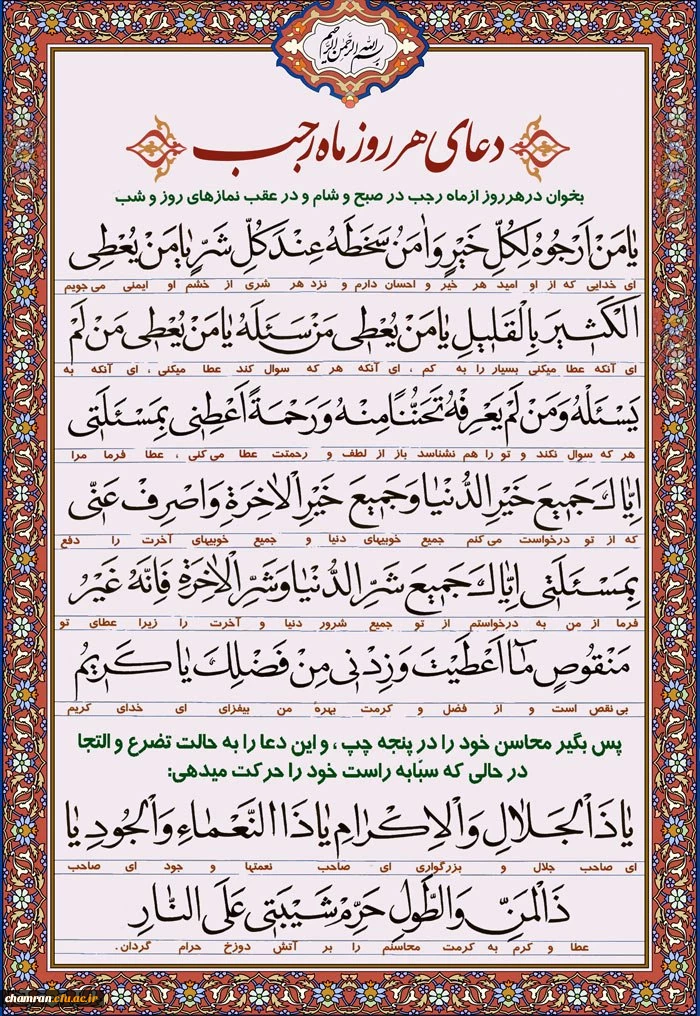 بسم الله الرحمن الرحیم
دعای هر روز ماه رجب
بخوان در هر روز از ماه رجب در صبح و شام و در عقب نمازهای روز و شب
یٰا مَنْ اَرْجُوهُ لِکُلِّ خَیْرٍ وَ اٰمَنُ سَخَطَهُ عِنْدَ کُلِّ شَرٍّ یٰا مَنْ یُعْطِی
ای خدایی که از او امید هر خیر و احسان دارم و نزد هر شری از خشم او ایمنی می جویم
الْکَثیٖرَ بِالْقَلیٖلِ یٰا مَنْ یُعْطیٖ مَنْ سَئَلَهُ یٰا مَنْ یُعْطیٖ مَنْ لَمْ
ای آنکه عطا میکنی بسیار را به کم ، ای آنکه هر که سوال کند عطا میکنی ، ای آنکه به
یَسْئَلْهُ وَ مَنْ لَمْ یَعْرِفْهُ تَحَنُّنًا مِنْهُ وَ رَحْمَةً اَعْطِنیٖ بِمَسْئَلَتیٖ
هر که سوال نکند و تو را هم نشناسد باز از لطف و رحمتت عطا می کنی ، عطا فرما مرا
اِیّٰاکَ جَمیٖعَ خَیْرِ الدُّنْیٰا وَ جَمیٖعَ خَیْرِ الْاٰخِرَةِ وَ اصْرِفْ عَنّیٖ
که از تو درخواست می کنم جمیع خوبیهای دنیا و جمیع خوبیهای آخرت را دفع
بِمَسْئَلَتیٖ اِیّٰاکَ جَمیٖعَ شَرِّ الدُّنْیٰا وَ شَرِّ الْاٰخِرَةِ فَاِنَّهُ غَیْرُ
فرما از من به درخواستم از تو جمیع شرور دنیا و آخرت را زیرا عطای تو
مَنْقُوصٍ مٰا اَعْطَیْتَ وَ زِدْنیٖ مِنْ فَضْلِکَ یٰا کَریٖمُ
بی نقص است و از فضل و کرمت بهرهٔ من بیفزای ای خدای کریم
پس بگیر محاسن خود را در پنجه چپ ، و این دعا را به حالت تضرع و التجا
در حالی که سبّابه راست خود را حرکت میدهی:
یٰا ذَا الْجَلاٰلِ وَ الْاِکْرٰامِ یٰا ذَا النَّعْمٰاءِ وَ الْجُودِ یٰا
ای صاحب جلال و بزرگواری ای صاحب نعمتها و جود ای صاحب
ذَا الْمَنِّ وَ الطَّوْلِ حَرِّمْ شَیْبَتیٖ عَلَی النّٰارِ
عطا و کرم به کرمت محاسنم را بر آتش دوزخ حرام گردان.
chamran.cfu.ac.ir